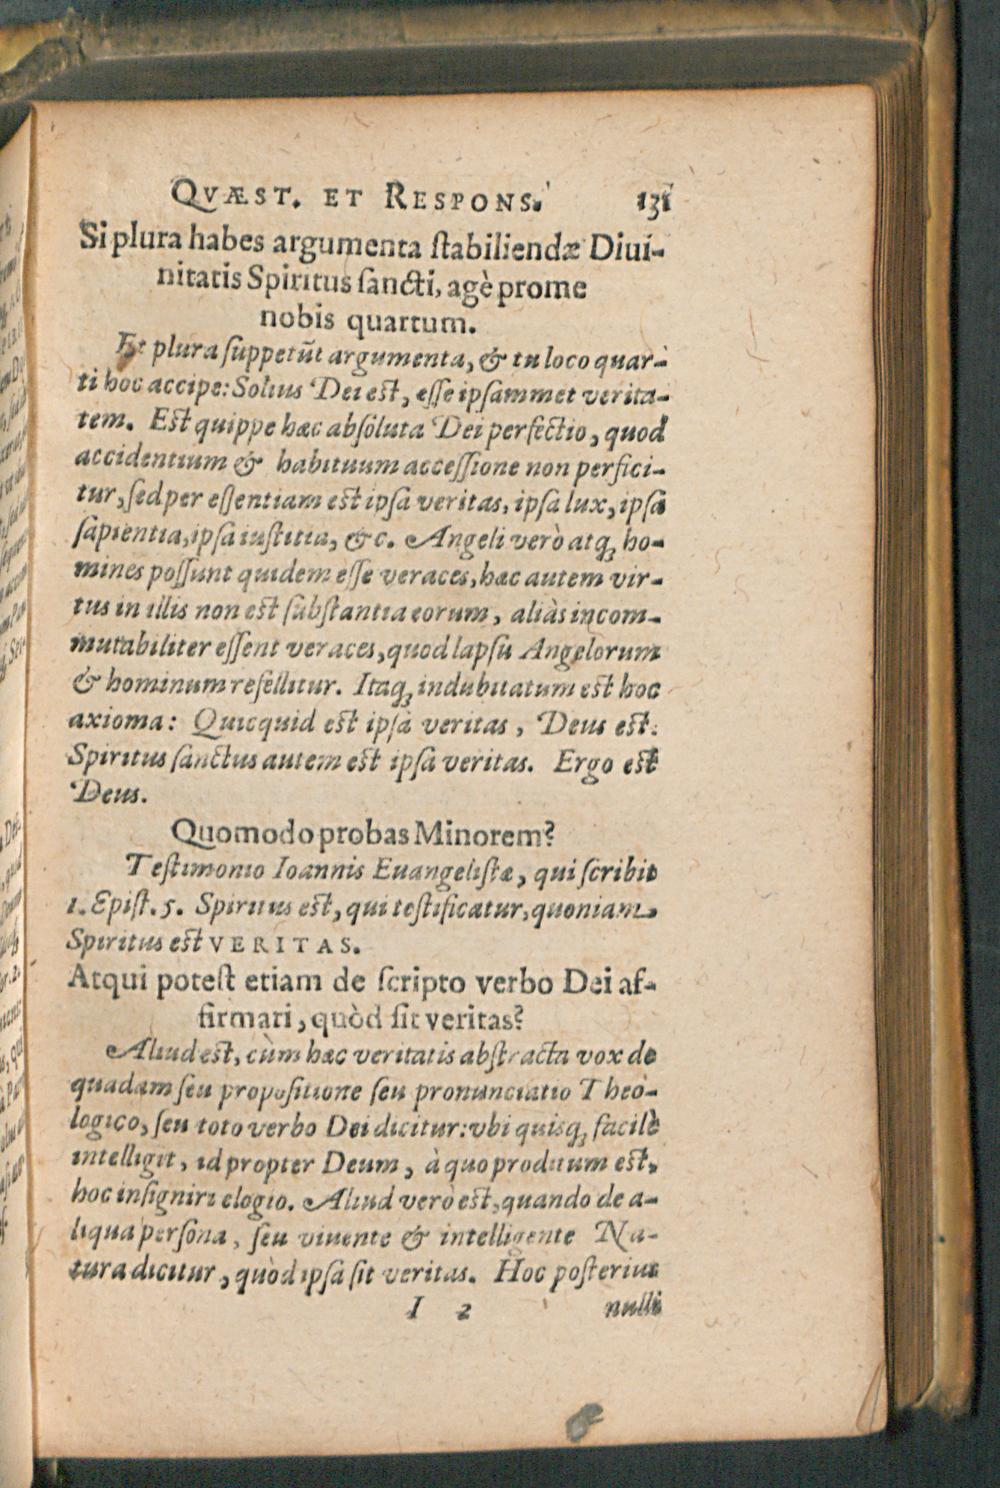 QVÆST. ET RESPONS. 131
Si plura habes argumenta ſtabiliendæ Diui-
nitatis Spiritus ſancti, agè prome
nobis quartum.
Et plura ſuppetũt argumenta, & tu loco quar-
ti hoc accipe: Solius Dei est, eſſe ipſammet verita-
tem. Est quippe hæc abſoluta Dei perfectio, quod
accidentium & habituum acceſſione non perfici-
tur, ſed per eſſentiam est ipſa veritas, ipſa lux, ipſa
ſapientia, ipſa iuſtitia, &c. Angeli verò atq; ho-
mines poſſunt quidem eſſe veraces, hæc autem vir-
tus in illis non est ſubſtantia eorum, aliàs incom-
mutabiliter eſſent veraces, quod lapſu Angelorum
& hominum refellitur. Itaq; indubitatum est hoc
axioma: Quicquid est ipſa veritas, Deus est.
Spiritus ſanctus autem est ipſa veritas. Ergo est
Deus.
Quomodo probas Minorem?
Teſtimonio Ioannis Euangeliſtæ, qui ſcribit
1. Epiſt. 5. Spiritus est, qui teſtificatur, quoniam
Spiritus est VERITAS.
Atqui poteſt etiam de ſcripto verbo Dei af-
firmari, quòd ſit veritas?
Aliud est, cùm hæc veritatis abſtracta vox de
quadam ſeu propoſitione ſeu pronunciatio Theo-
logico, ſeu toto verbo Dei dicitur: vbi quisq; facilè
intelligit, id propter Deum, à quo proditum est,
hoc inſigniri elogio. Aliud verò est, quando de a-
liqua perſona, ſeu viuente & intelligente Na-
tura dicitur, quòd ipſa ſit veritas. Hoc poſterius
I 2 nulli